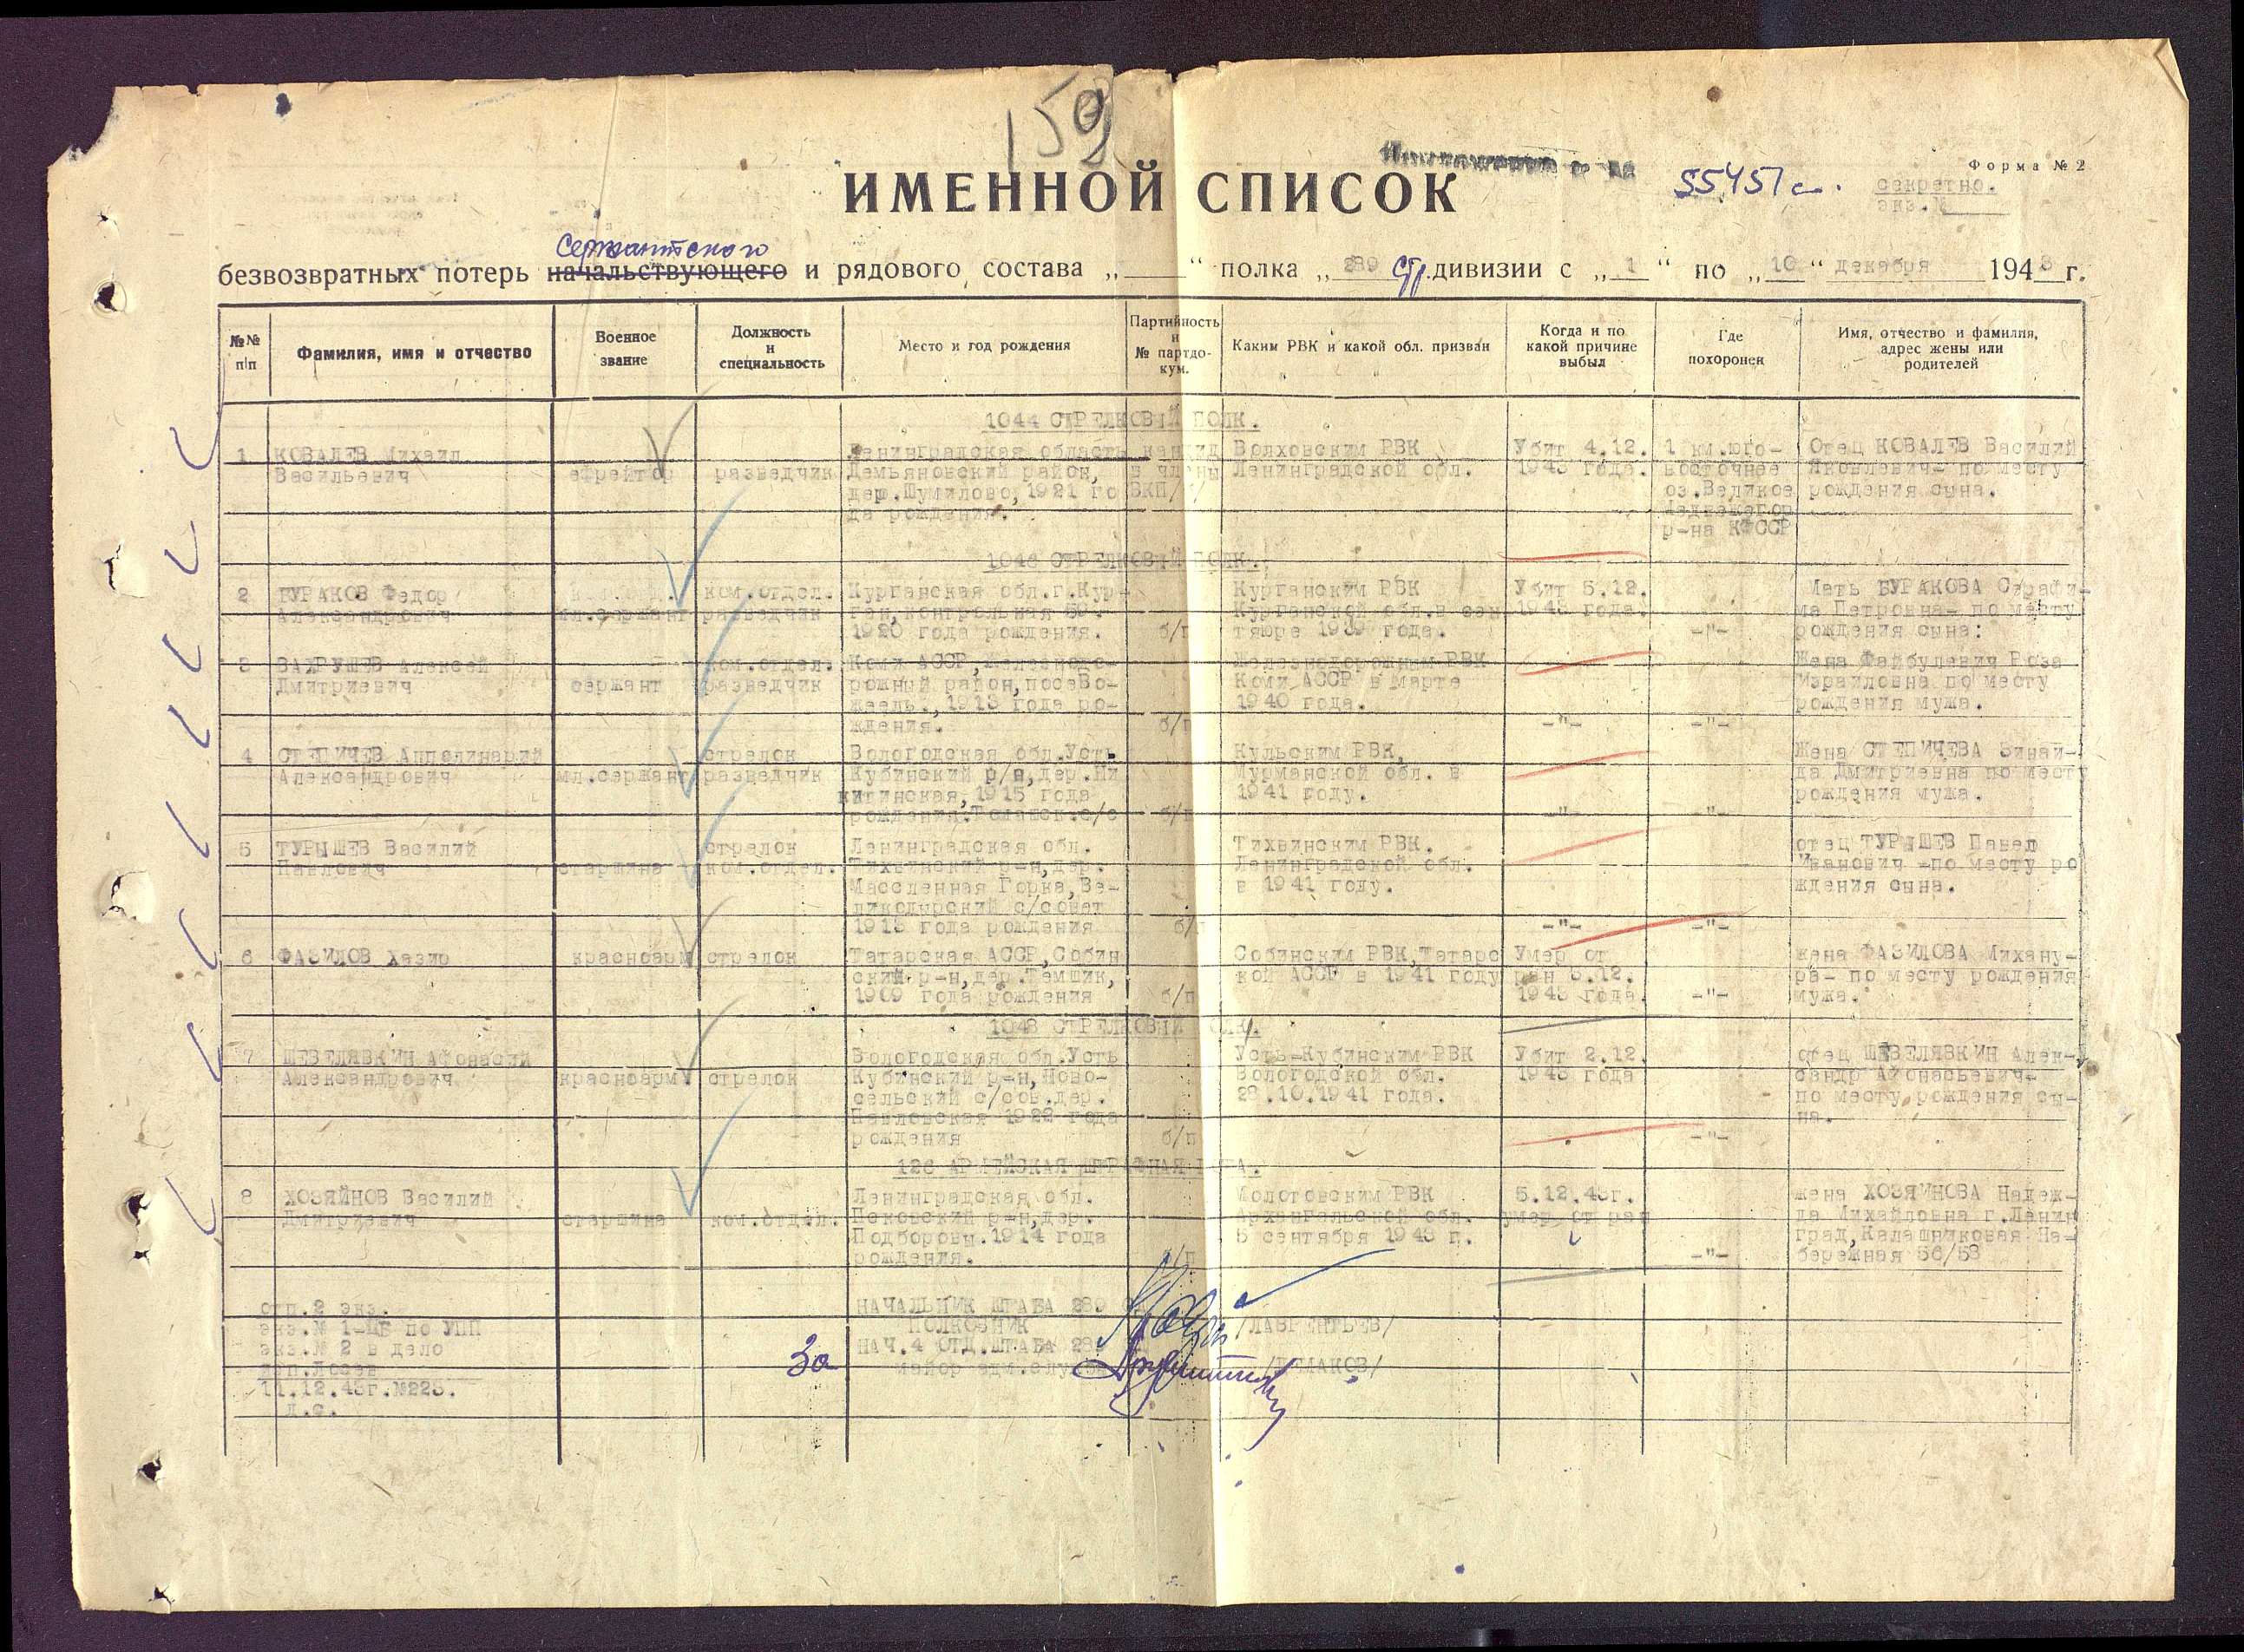 159
Форма № 2
ИМЕННОЙ СПИСОК
55457с.
секретно.
экз.№
Сержантского
безвозвратных потерь начальствующего и рядового состава „ “ полка „289 стр. дивизии с „1“ по „10“ декабря 1943 г.
№№ п/п
Фамилия, имя и отчество
Военное звание
Должность и специальность
Место и год рождения
Партийность и № партдокум.
Каким РВК и какой обл. призван
Когда и по какой причине выбыл
Где похоронен
Имя, отчество и фамилия, адрес жены или родителей
1044 СТРЕЛКОВЫЙ ПОЛК.
1 КОВАЛЕВ Михаил Ленинградская область канд Волховским РВК Убит 4.12. 1 км.юго- Отец КОВАЛЕВ Василий
Васильевич ефрейтор разведчик Демьяновский район, в члены Ленинградской обл. 1943 года. восточнее Яковлевич- по месту
дер.Шумилово, 1921 го ВКП/ оз.Великое рождения сына.
да рождения.
р-на КФССР
СТРЕЛКОВЫЙ ПОЛК.
2 БУРАКОВ Федор ком.отдел. Курганская обл.г.Кур- Курганским РВК Убит 5.12. Мать БУРАКОВА Серафи-
Александрович мл.сержант разведчик ган,контрольная 59. Курганской обл.в сен 1943 года. ма Петровна- по месту
1920 года рождения. б/п тябре 1939 года. -"- рождения сына.
3 ВАХРУШЕВ Алексей ком.отдел. Коми АССР,Железнодо- Железнодорожным РВК Жена Файбулевич Роза
Дмитриевич сержант разведчик рожный район,пос.Во- Коми АССР в марте Израиловна по месту
жаель.,1913 года ро- 1940 года. рождения мужа.
ждения. б/п -"- -"-
4 СТЕПИЧЕВ Апполинарий стрелок Вологодская обл.Усть Кульским РВК, Жена СТЕПИЧЕВА Зинаи-
Александрович мл.сержант разведчик Кубинский р/н,дер.Ни Мурманской обл. в да Дмитриевна по месту
китинская,1915 года 1941 году. рождения мужа.
рождения. с/с б/п -"- -"-
5 ТУРЫШЕВ Василий стрелок Ленинградская обл. Тихвинским РВК. отец ТУРЫШЕВ Павел
Павлович старшина ком.отдел. Тихвинский р-н,дер. Ленинградской обл. Иванович -по месту ро
Массленная Горка,Ве- в 1941 году. ждения сына.
с/совет
1913 года рождения б/ -"- -"-
6 ФАЗИЛОВ Хазип красноарм стрелок Татарская АССР,Собин Собинским РВК,Татарс Умер от жена ФАЗИЛОВА Михану-
ский р-н,дер.Темшик, кой АССР в 1941 году ран 5.12. ра- по месту рождения
1909 года рождения б/п 1943 года. -"- мужа.
1048 СТРЕЛКОВЫЙ ПОЛК.
7 ШЕВЕЛЯВКИН Афонасий Вологодская обл.Усть Усть-Кубинским РВК Убит 2.12. отец ШЕВЕЛЯВКИН Алек-
Александрович красноарм стрелок Кубинский р-н,Ново- Вологодской обл. 1943 года сандр Афонасьевич-
сельский с/сов.дер. 28.10.1941 года. по месту рождения сы-
Павловская 1922 года на.
рождения б/п -"-
126 АРМЕЙСКАЯ ШТРАФНАЯ РОТА.
8 ХОЗЯИНОВ Василий Ленинградская обл. Молотовским РВК 5.12.43г. жена ХОЗЯИНОВА Надеж-
Дмитриевич старшина ком.отдел. Псковский р-н,дер. Архангельской обл. умер от ран да Михайловна г.Ленин
Подборовы.1914 года 5 сентября 1943 г. град,Калашниковая На-
рождения. б/п -"- бережная 56/58
отп.2 экз. НАЧАЛЬНИК ШТАБА 289 СД
экз.№ 1-ЦБ по УПП ПОЛКОВНИК /ЛАВРЕНТЬЕВ/
экз.№ 2 в дело За НАЧ.4 ОТД.ШТАБА 289 СД
майор адм.службы /ЕРМАКОВ/
11.12.43г.№223.